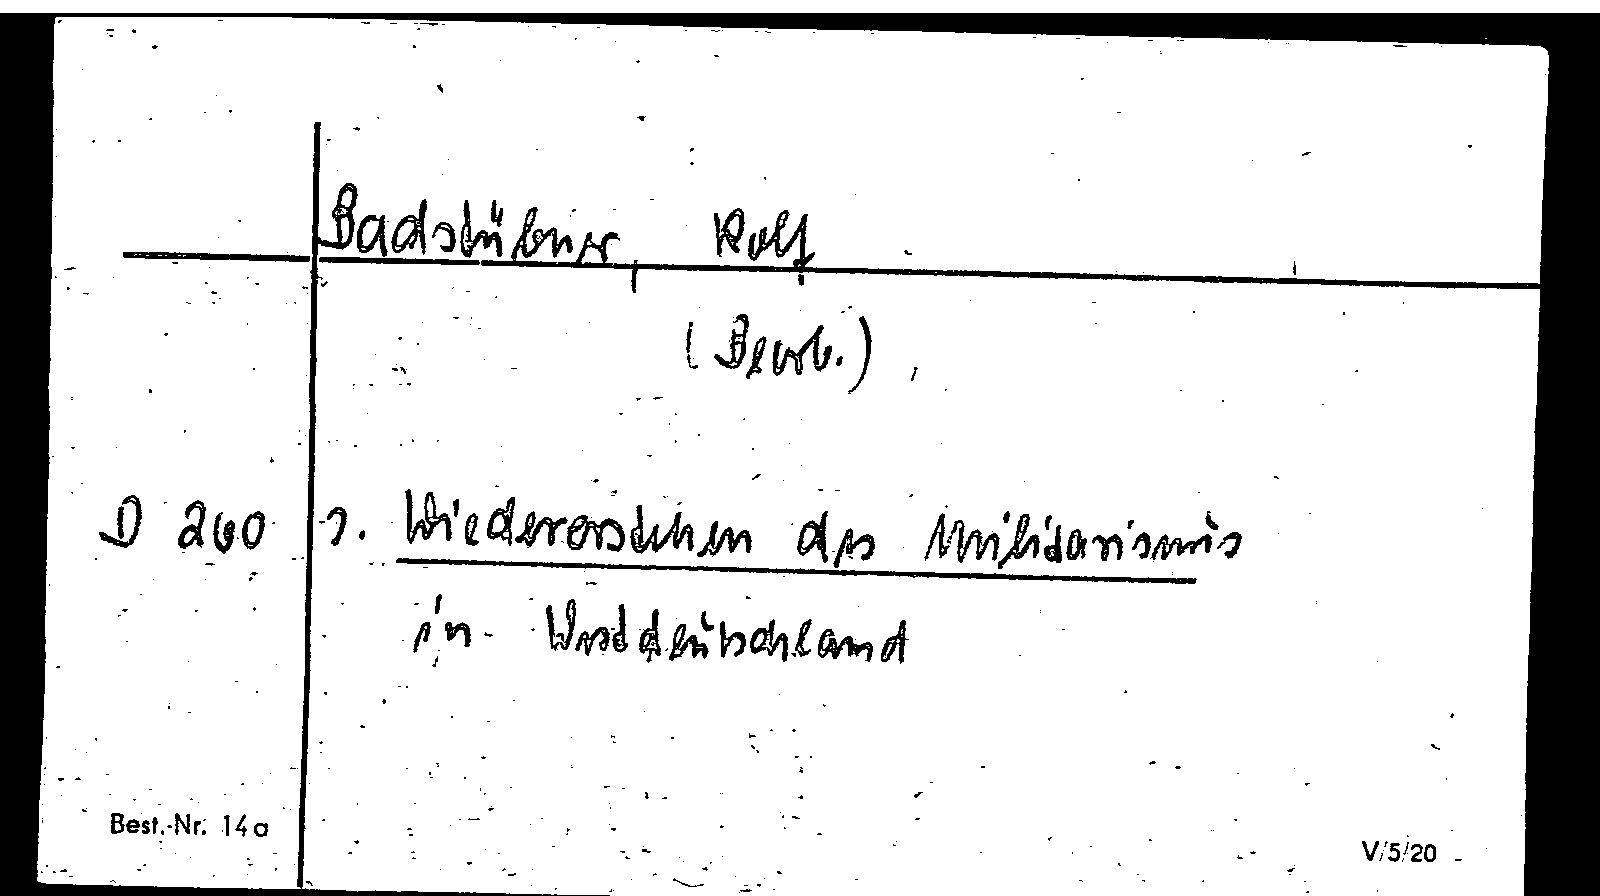 Badstübner, Rolf
(Bearb.)
D 260 s. Wiedererstehen des Militarismus
in Westdeutschland
Best.-Nr. 14a
V/5/20